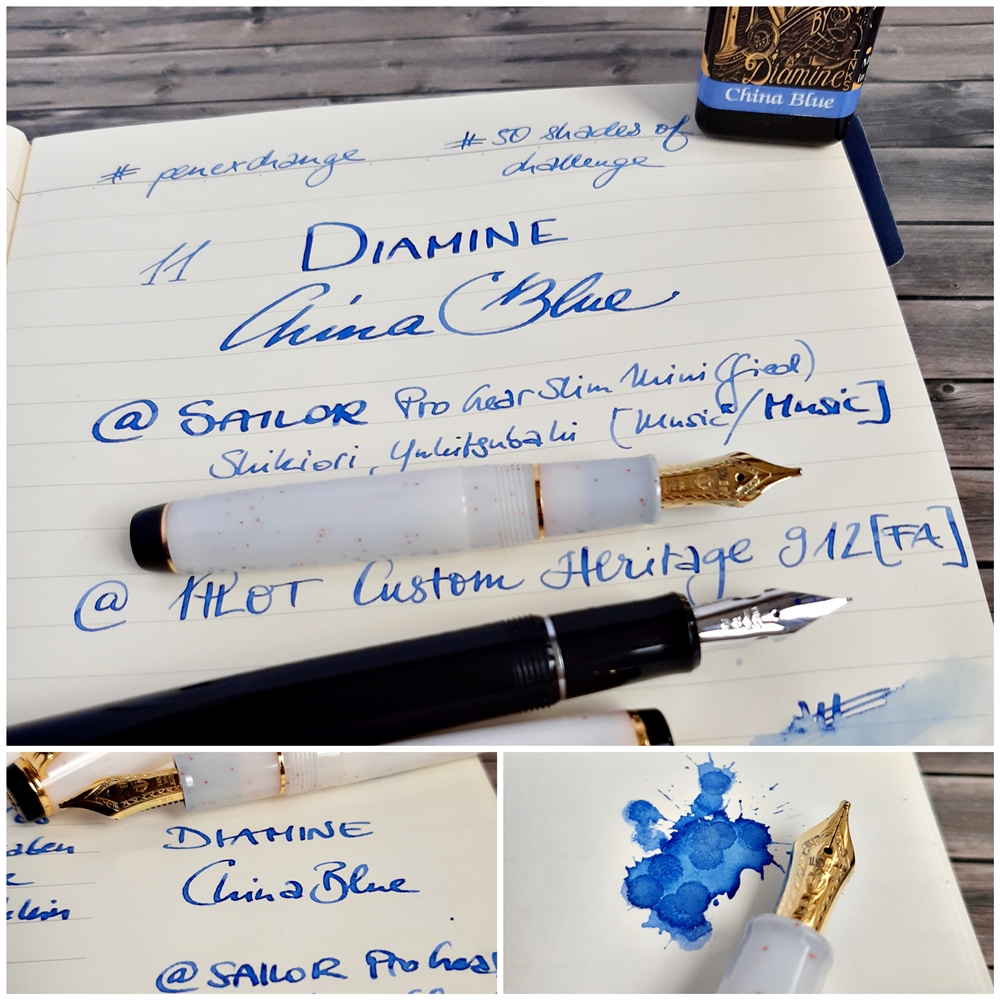 Diamine
China Blue
# penexchange
# 50 shades of
challenge
11
DIAMINE
China Blue
@ SAILOR Pro Gear Slim Mini (fied)
Shikiori, Yukitsubaki [Music/Music]
@ PILOT Custom Heritage 912 [FA]
DIAMINE
China Blue
@ SAILOR Pro Gear